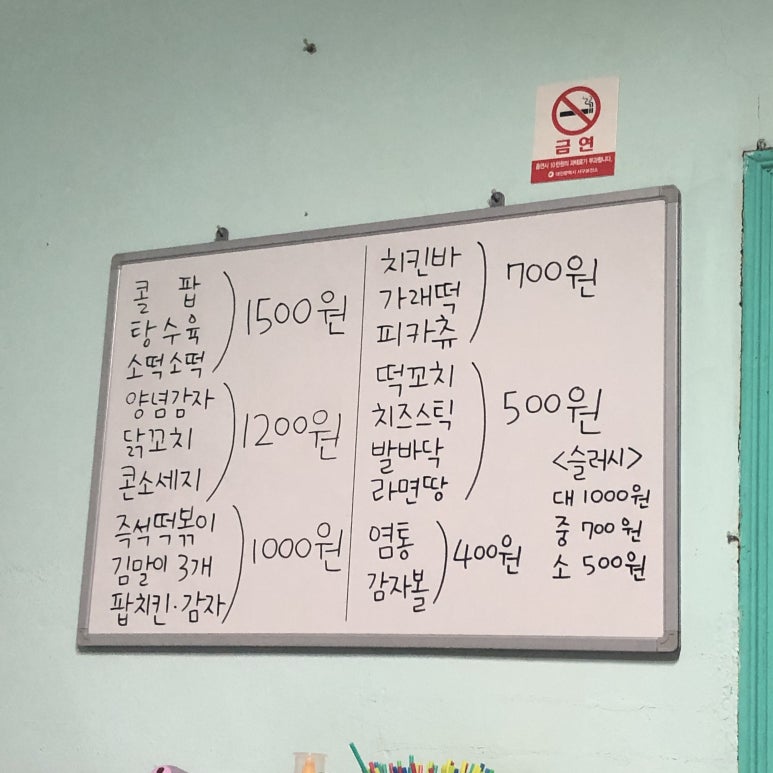 금연
흡연시 10만원의 과태료가 부과됩니다.
대전광역시 서구보건소
콜 팝
탕수육
소떡소떡
1500원
양념감자
닭꼬치
콘소세지
1200원
즉석떡볶이
김말이 3개
팝치킨·감자
1000원
치킨바
가래떡
피카츄
700원
떡꼬치
치즈스틱
발바닥
라면땅
500원
염통
감자볼
400원
<슬러시>
대 1000원
중 700원
소 500원